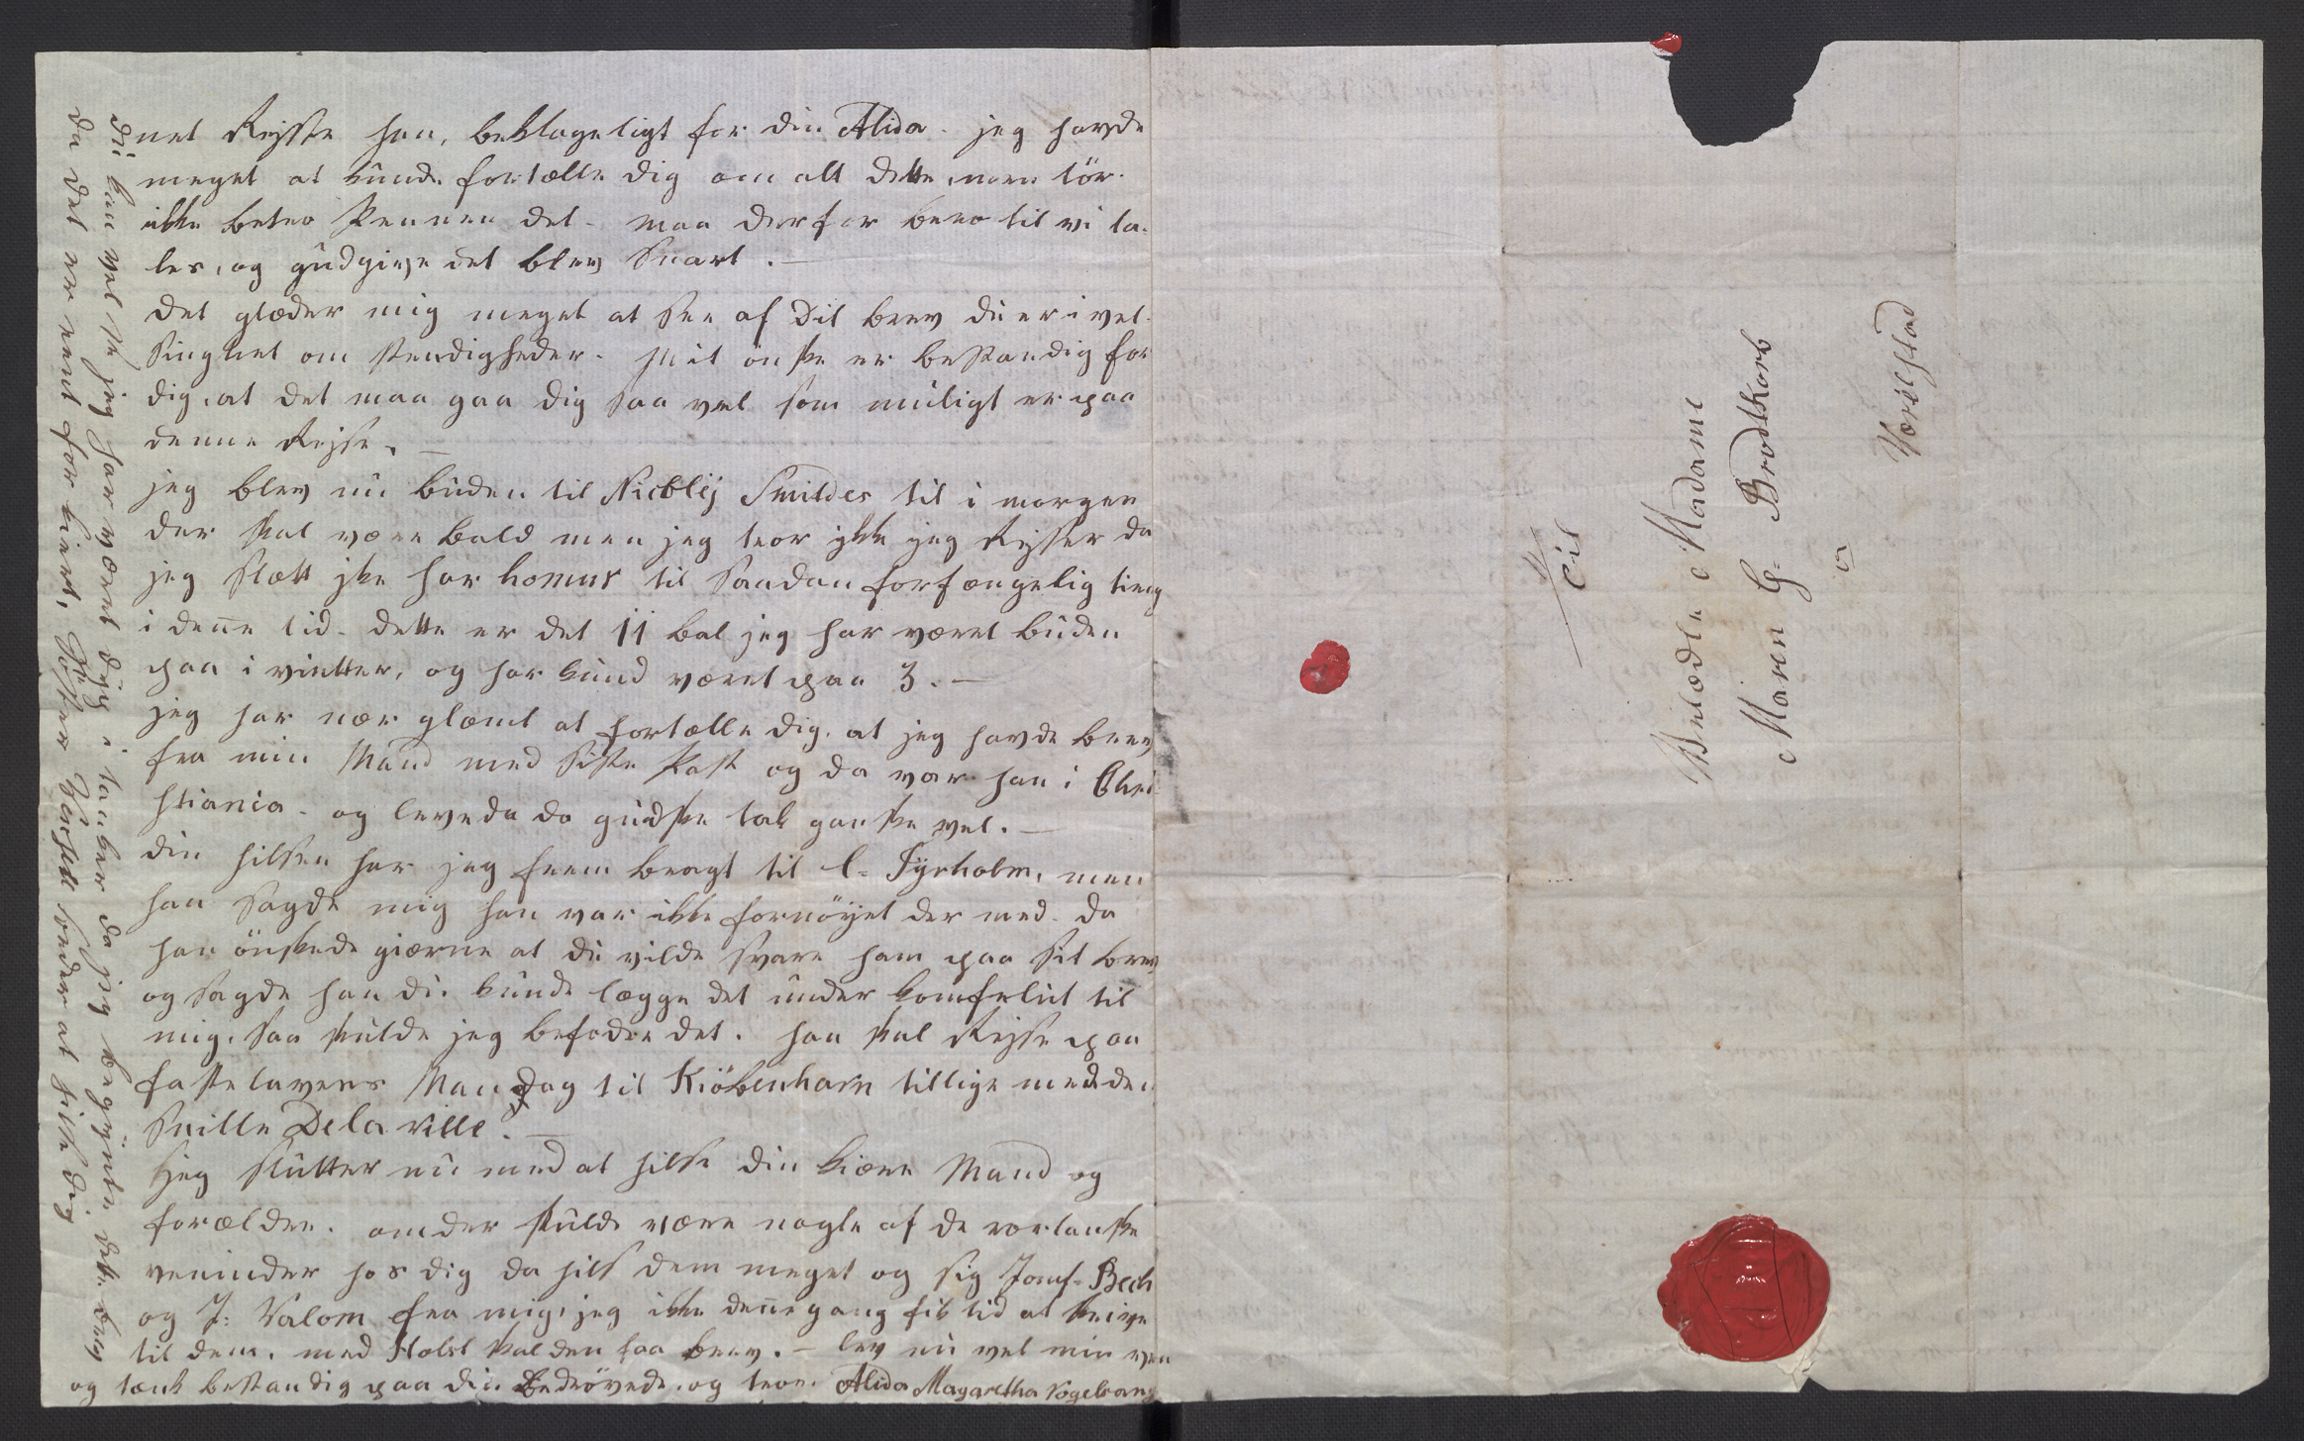 net Rejste han, beklageligt for din Alida. jeg havde
meget at kunde fortælle dig om alt dette, men tör
ikke betro Pennen det. maa derfor bero til vi ta-
les, og gudgive det blev Snart. —
det glæder mig meget at See af Dit brev du er i vel-
singnet om stendigheder. Mit önske er bestandig for
dig, at det maa gaa dig saa vel som muligt er paa
denne Rejse. —
jeg blev nu buden til Nicblij Smildes til i morgen
der skal være bald men jeg tror ikke jeg Rejser da
jeg slætt jke har homur til saadan forfængelig ting
i deñe tid. dette er det 11 bal jeg har været buden
paa i vintter, og har kund været paa 3. —
jeg har nær glemt at fortælle dig, at jeg havde brev
fra min Mand med siste Post og da var han i Chri
stiania. og levede da gudske tak ganske vel. —
din hilsen har jeg frem bragt til C= Fyrholm, men
han sagde mig han var ikke fornöyet der med. da
han önskede giærne at du vilde svare ham paa sit brev
og sagde han du kunde lægge det under komfelut til
mig, saa skulde jeg befodre det. han skal Rejse paa
fastelavens Mandag til Kiöbenhavn tillige med den
Snille Dela ville. —
Jeg slutter nu med at hilse din kiære Mand og
forældre. om der skulde være nogle af de vorlanske
veninder hos dig da hils dem meget og sig Jomf= Bech
og J: Valom fra mig, jeg ikke deñe gang fik tid at skrive
til dem. med Holst skal den faa brev. — lev nu vel min ven
og tænk bestandig paa din bedrövede og troe. Alida Magaretha Vogelsang
du kan vel see jeg har været dyb i tanker da jeg begynte dette brev
da det er vent for kiert, Söster Vinsett beder at hilse dig
Til
Velædle Madame
Maren G= Brodtkorb
a
Værilstad